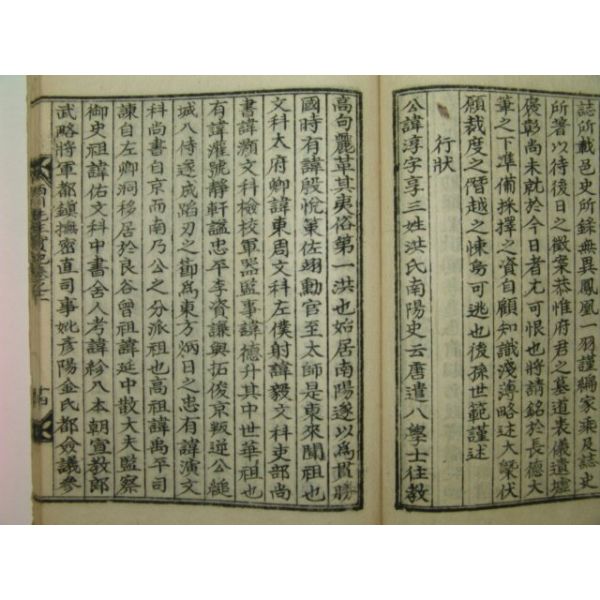 誌所載邑史所錄無異鳳凰一羽謹編家乘及誌史
所著以待後日之徵案恭惟府君之墓道表儀遺墟
褒彰尚未就於今日者尤可恨也將請銘於長德大
筆之下準備採擇之資自顧知識淺薄略述大槩伏
願裁度之僭越之悚烏可逃也後孫世範謹述
行狀
公諱淳字享三姓洪氏南陽史云唐遣八學士往敎
高句麗革其夷俗第一洪也始居南陽遂以爲貫勝
國時有諱殷悅策佐翊勳官至太師是東來鼻祖也
文科太府卿諱東周文科左僕射諱毅文科吏部尚
書諱灝文科檢校軍器監事諱德升其中世華祖也
有諱灌號靜軒諡忠平李資謙與拓俊京叛逆公縋
城入侍遂成蹈刃之節爲東方炳日之忠有諱演文
科尚書自京而南乃公之分派祖也高祖諱禹平司
諫自左卿洞移居於良谷曾祖諱延中散大夫監察
御史祖諱佑文科中書舍人考諱紾入本朝宣敎郎
武略將軍都鎮撫密直司事妣彥陽金氏都僉議參
先生實記卷之二
十四